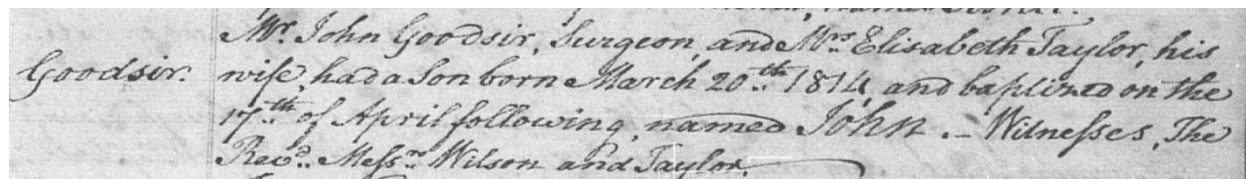 Mr. John Goodsir, Surgeon, and Mrs. Elisabeth Taylor, his
Goodsir. wife, had a Son born March 20.th 1814, and baptized on the
17.th of April following, named John. – Witnesses, The
Revd. Messrs. Wilson and Taylor.